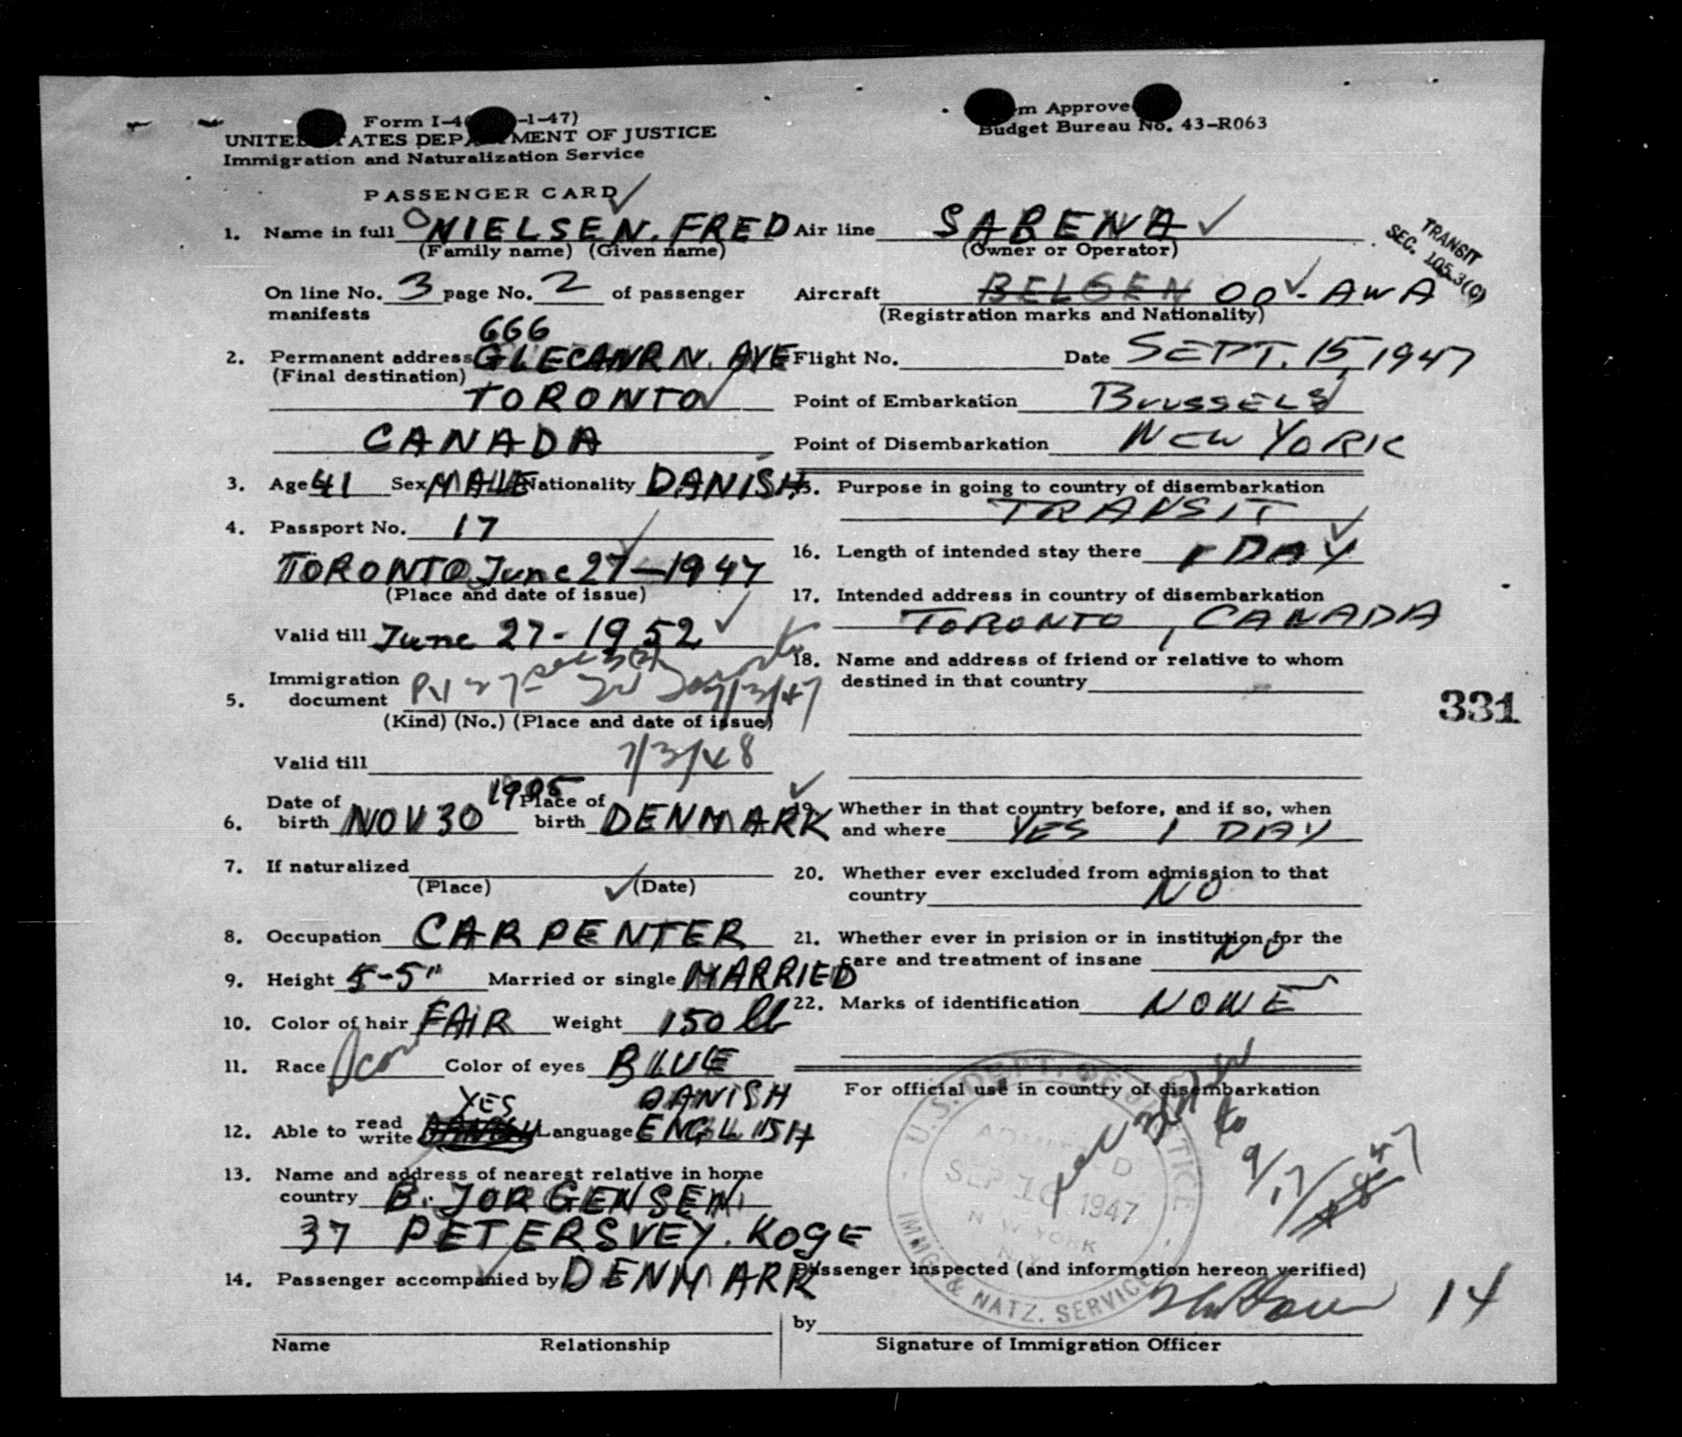 Form I-4 -1-47)
UNITE ATES DEPA MENT OF JUSTICE
Immigration and Naturalization Service
PASSENGER CARD
1. Name in full NIELSEN. FRED
(Family name) (Given name)
On line No. 3 page No. 2 of passenger
manifests
666
2. Permanent address N. AVE
(Final destination)
TORONTO
CANADA
3. Age 41 Sex MALE Nationality DANISH
4. Passport No. 17
TORONTO June 27-1947
(Place and date of issue)
Valid till June 27-1952
Immigration
5. document 7/3/47
(Kind) (No.) (Place and date of issue)
Valid till 7/3/48
1905
6. Date of birth NOV 30 Place of birth DENMARK
7. If naturalized
(Place) (Date)
8. Occupation CARPENTER
9. Height 5-5" Married or single MARRIED
10. Color of hair FAIR Weight 150 lb
11. Race Scan Color of eyes BLUE
YES DANISH
12. Able to read write Language ENGLISH
13. Name and address of nearest relative in home
country B. JORGENSEN
37 PETERSVEY. KOGE
14. Passenger accompanied by DENMARK
Name Relationship
m Approve
Budget Bureau No. 43-R063
Air line SABENA
(Owner or Operator)
TRANSIT
SEC. 105.3(C)
Aircraft BELGEN OO-AWA
(Registration marks and Nationality)
Flight No. Date SEPT. 15, 1947
Point of Embarkation BRUSSELS
Point of Disembarkation NEW YORK
15. Purpose in going to country of disembarkation
TRANSIT
16. Length of intended stay there 1 DAY
17. Intended address in country of disembarkation
TORONTO, CANADA
18. Name and address of friend or relative to whom
destined in that country
331
19. Whether in that country before, and if so, when
and where YES 1 DAY
20. Whether ever excluded from admission to that
country NO
21. Whether ever in prision or in institution for the
care and treatment of insane NO
22. Marks of identification NONE
For official use in country of disembarkation
U.S. DEPT. OF JUSTICE
ADMITTED
SEP 16 1947
NEW YORK
N.Y.
IMMG. & NATZ. SERVICE
to
9/17/47
Passenger inspected (and information hereon verified)
14
by
Signature of Immigration Officer